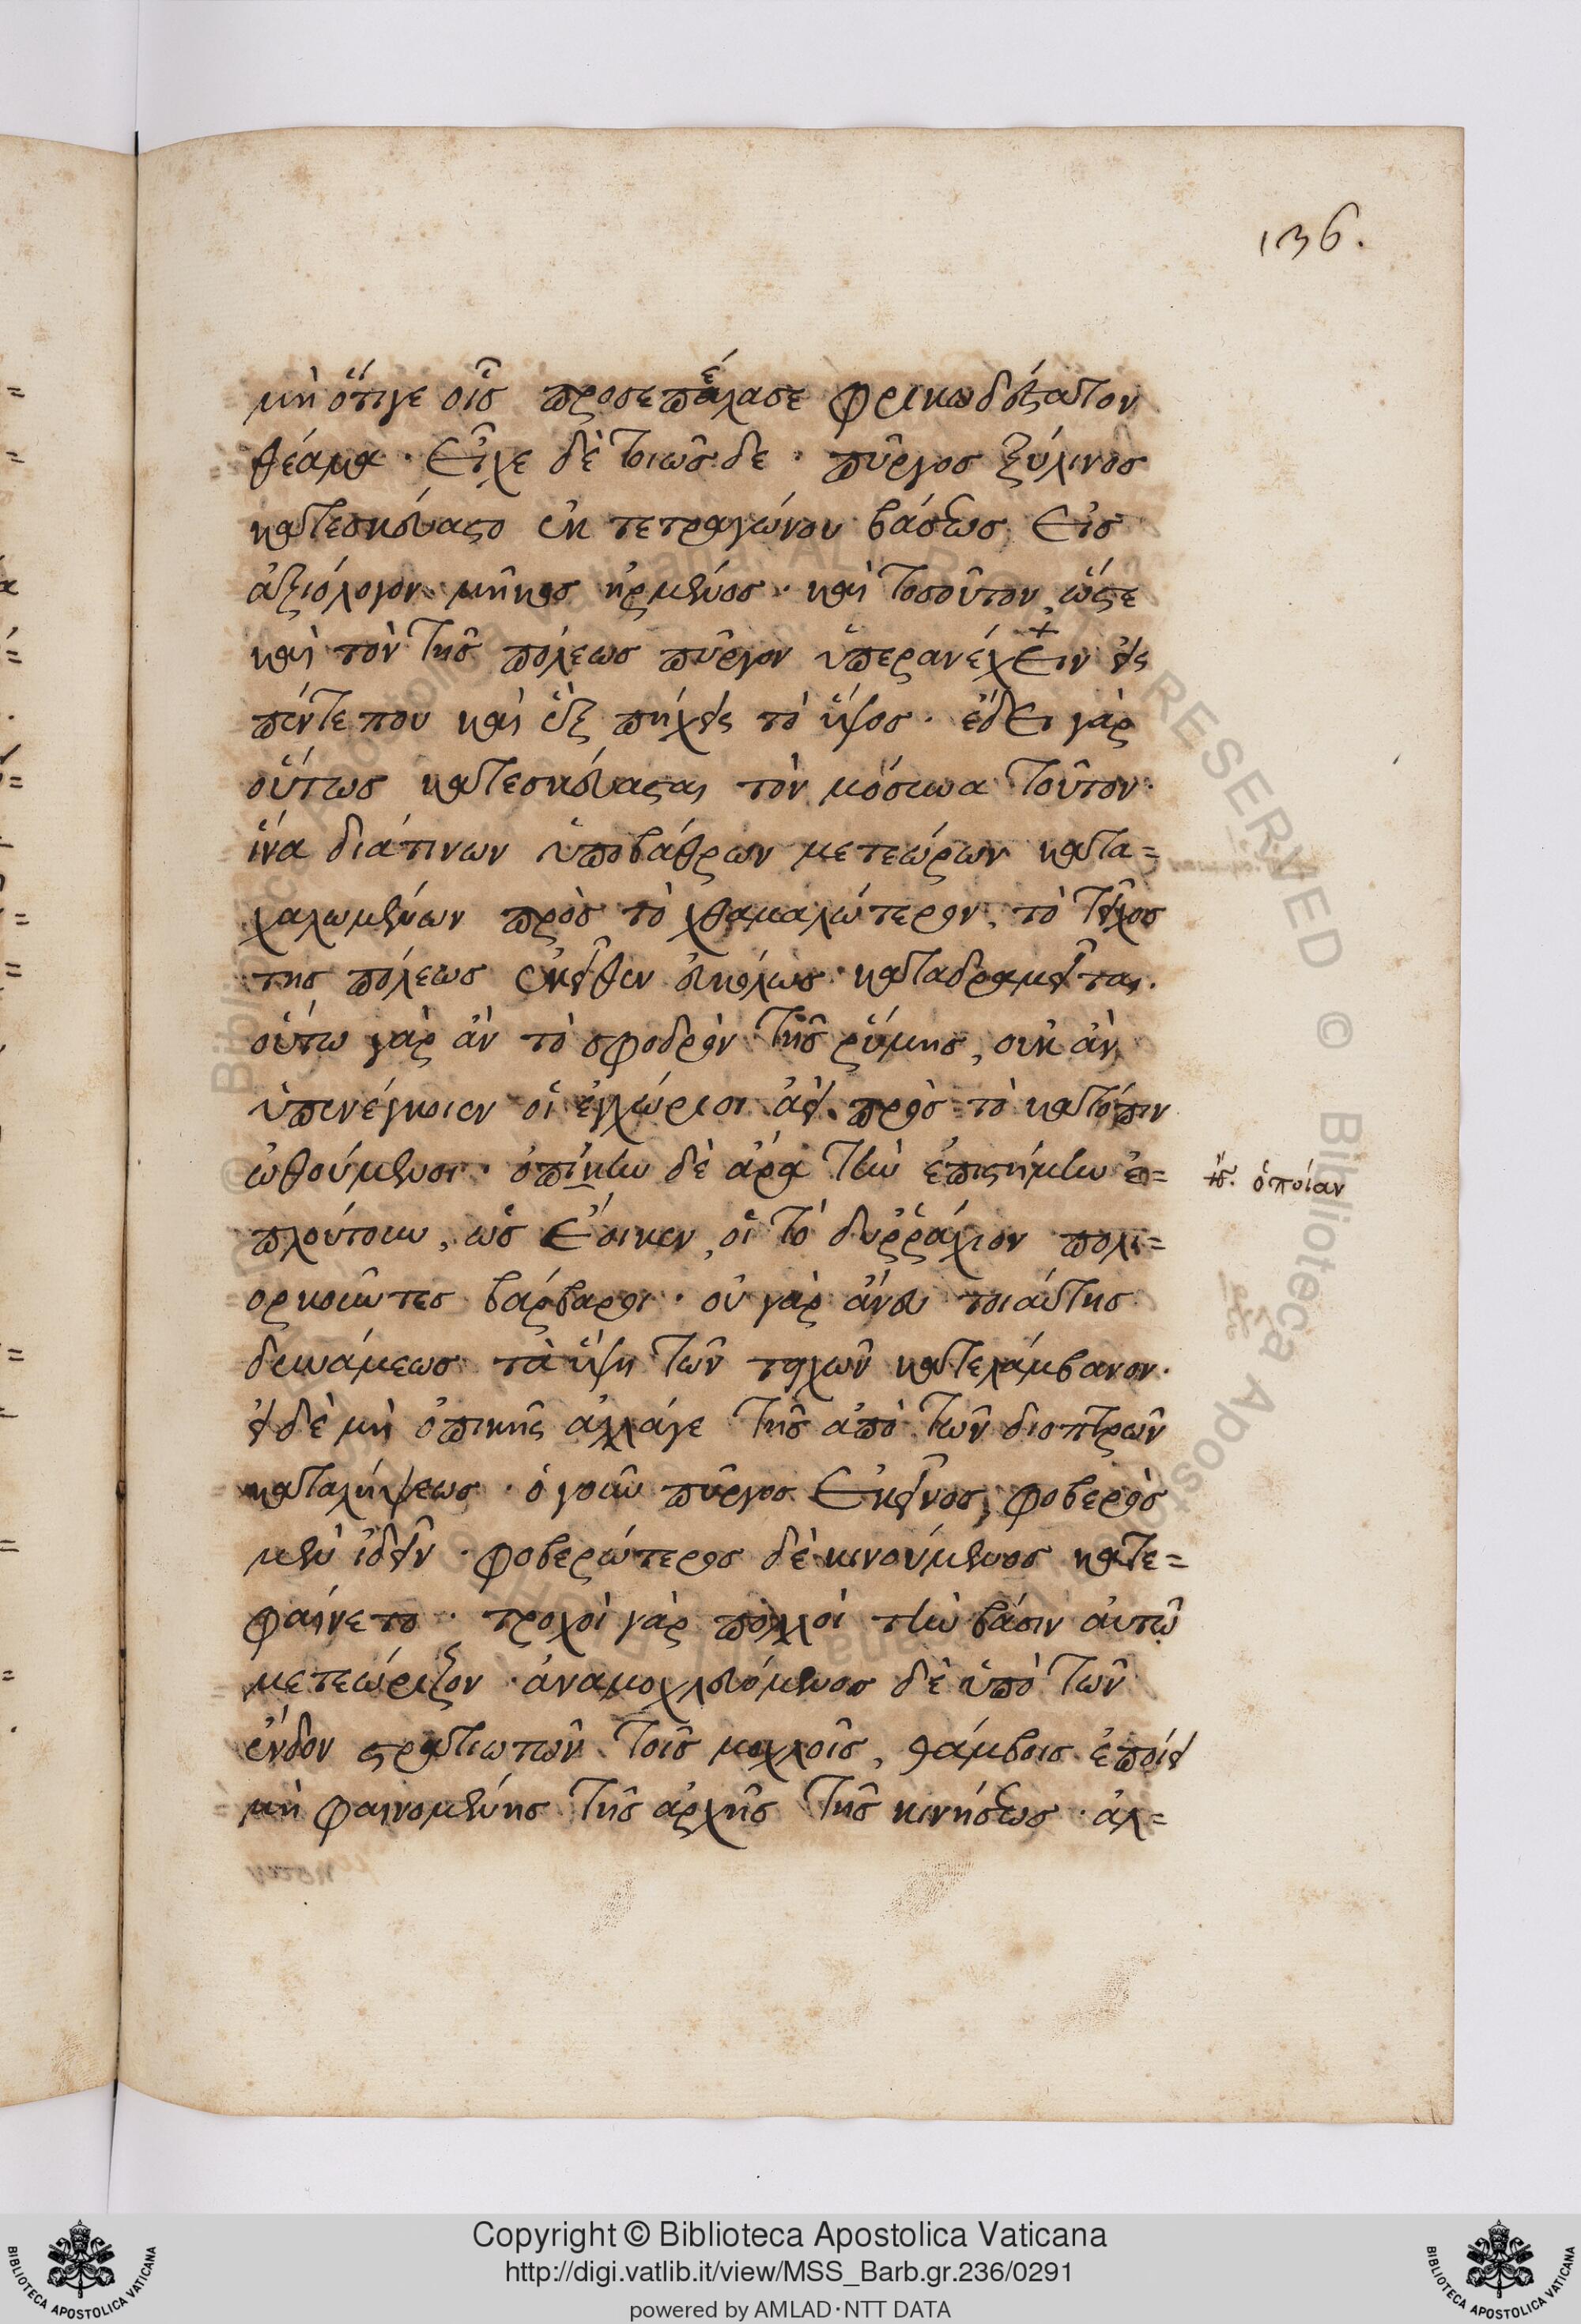 136.
μὴ ὅτιγε οἷς προσεπέλασε φρικωδέστατον
θέαμα · Εἶχε δὲ τοιῶσδε · πῦργος ξύλινος
κατεσκεύαστο ἐκ τετραγώνου βάσεως Εἰς
ἀξιόλογον μῆκος ἠρμένος · καὶ τοσοῦτον, ὥστε
καὶ τὸν τῆς πόλεως πῦργον ὑπερανέχειν εἰς
πέντε που καὶ ἓξ πήχεις τὸ ὕψος · ἔδει γὰρ
οὕτως κατεσκευάσαι τὸν μόσυνα τοῦτον·
ἵνα διάτινων ὑποβάθρων μετεώρων κατα=
χαλωμένων πρὸς τὸ χθαμαλώτερον, τὸ τεῖχος
της πόλεως ἐκεῖθεν εὐκόλως καταδραμεῖται.
οὕτω γὰρ ἂν τὸ σφοδρὸν τῆς ῥύμης, οὐκ ἂν
ὑπενέγκοιεν οἱ ἐγχώριοι ἀεὶ πρὸς τὸ κατόπιν
ὠθούμενοι · ὀπίκην δὲ ἄρα τὴν ἐπιστήμην ἐ=
ἴσ. ὁποίαν
πλούτουν, ὡς Ἔοικεν, οἱ τὸ δυῤῥάχιον πολι=
ορκοῦντες βάρβαροι · οὐ γὰρ ἄνευ τοιαύτης
δυνάμεως τὰ ὕψη τῶν τειχῶν κατελάμβανον.
εἰ δὲ μὴ ὀπικῆς ἀλλάγε τῆς ἀπὸ τῶν διοπτρῶν
καταλήψεως · ὁ γοῦν πῦργος Ἐκεῖνος, φοβερὸς
μὲν ἰδεῖν · φοβερώτερος δὲ κινούμενος κατε=
φαίνετο · τροχοὶ γὰρ πολλοὶ τὴν βάσιν αὐτοῦ
μετεώριζον · ἀναμοχλευόμενος δὲ ὑπὸ τῶν
ἔνδον στρατιωτῶν τοῖς μοχλοῖς, θάμβοις ἐποίει
μὴ φαινομένης τῆς ἀρχῆς τῆς κινήσεως · ἀλ=
© Biblioteca Apostolica Vaticana. ALL RIGHTS RESERVED
Copyright © Biblioteca Apostolica Vaticana
http://digi.vatlib.it/view/MSS_Barb.gr.236/0291
powered by AMLAD·NTT DATA
BIBLIOTECA APOSTOLICA VATICANA
BIBLIOTECA APOSTOLICA VATICANA